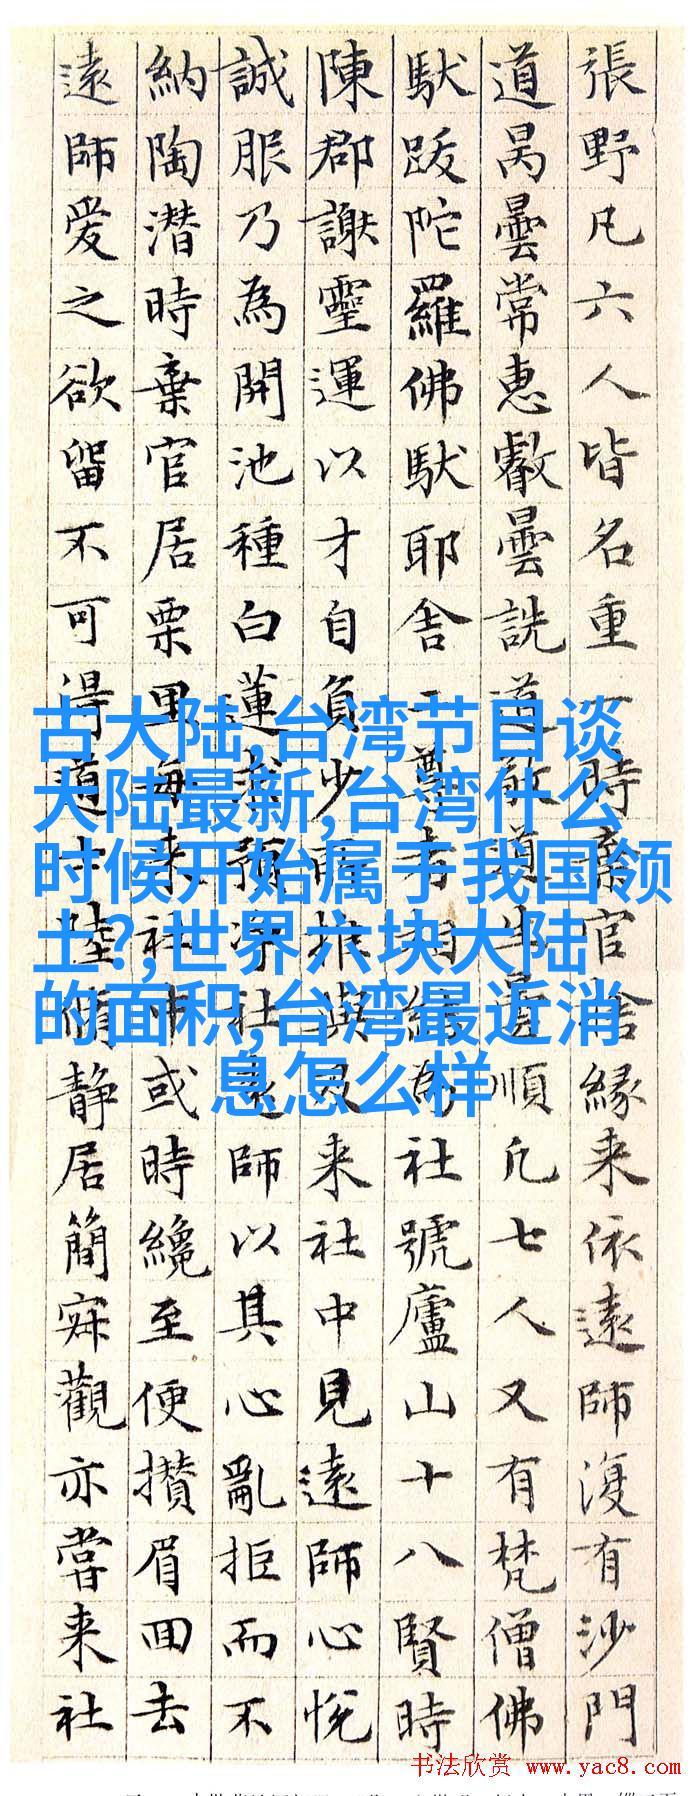 張野凡六人皆名重一時棄官舍緣来依遠師復有沙門
道昺曇常惠叡曇詵道敬道生曇順凡七人又有梵僧佛
馱跋陀羅佛馱耶舍二尊者相結為社號廬山十八賢時
陳郡謝靈運以才自負少所推與及来社中見遠師心悅
誠服乃為開池種白蓮求預淨社遠師以其心亂拒而不
納陶潜時棄官居栗里每来社中或時纔至便攢眉回去
遠師爱之欲留不可得道士陸脩静居簡寂觀亦嘗来社
古大陆,台湾节目谈
大陆最新,台湾什么
时候开始属于我国领
土?,世界六块大陆
的面积,台湾最近消
息怎么样
书法欣赏 www.yac8.com